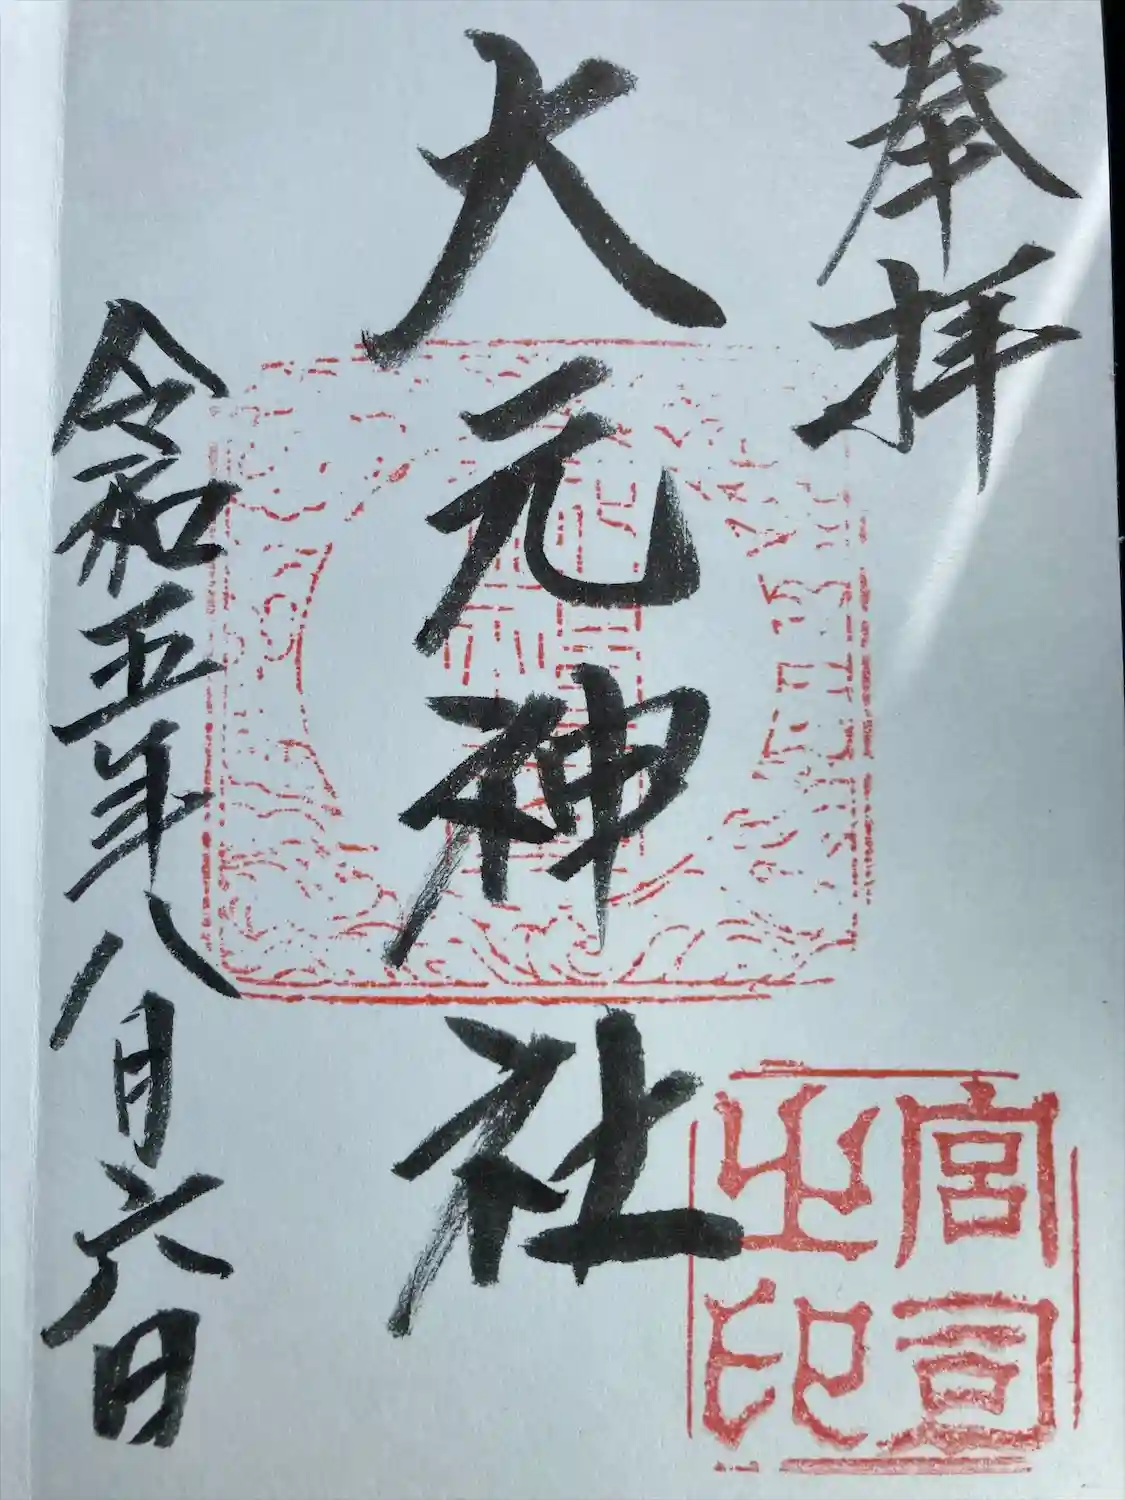 奉拝
大元神社
令和五年八月六日
宮司
之印